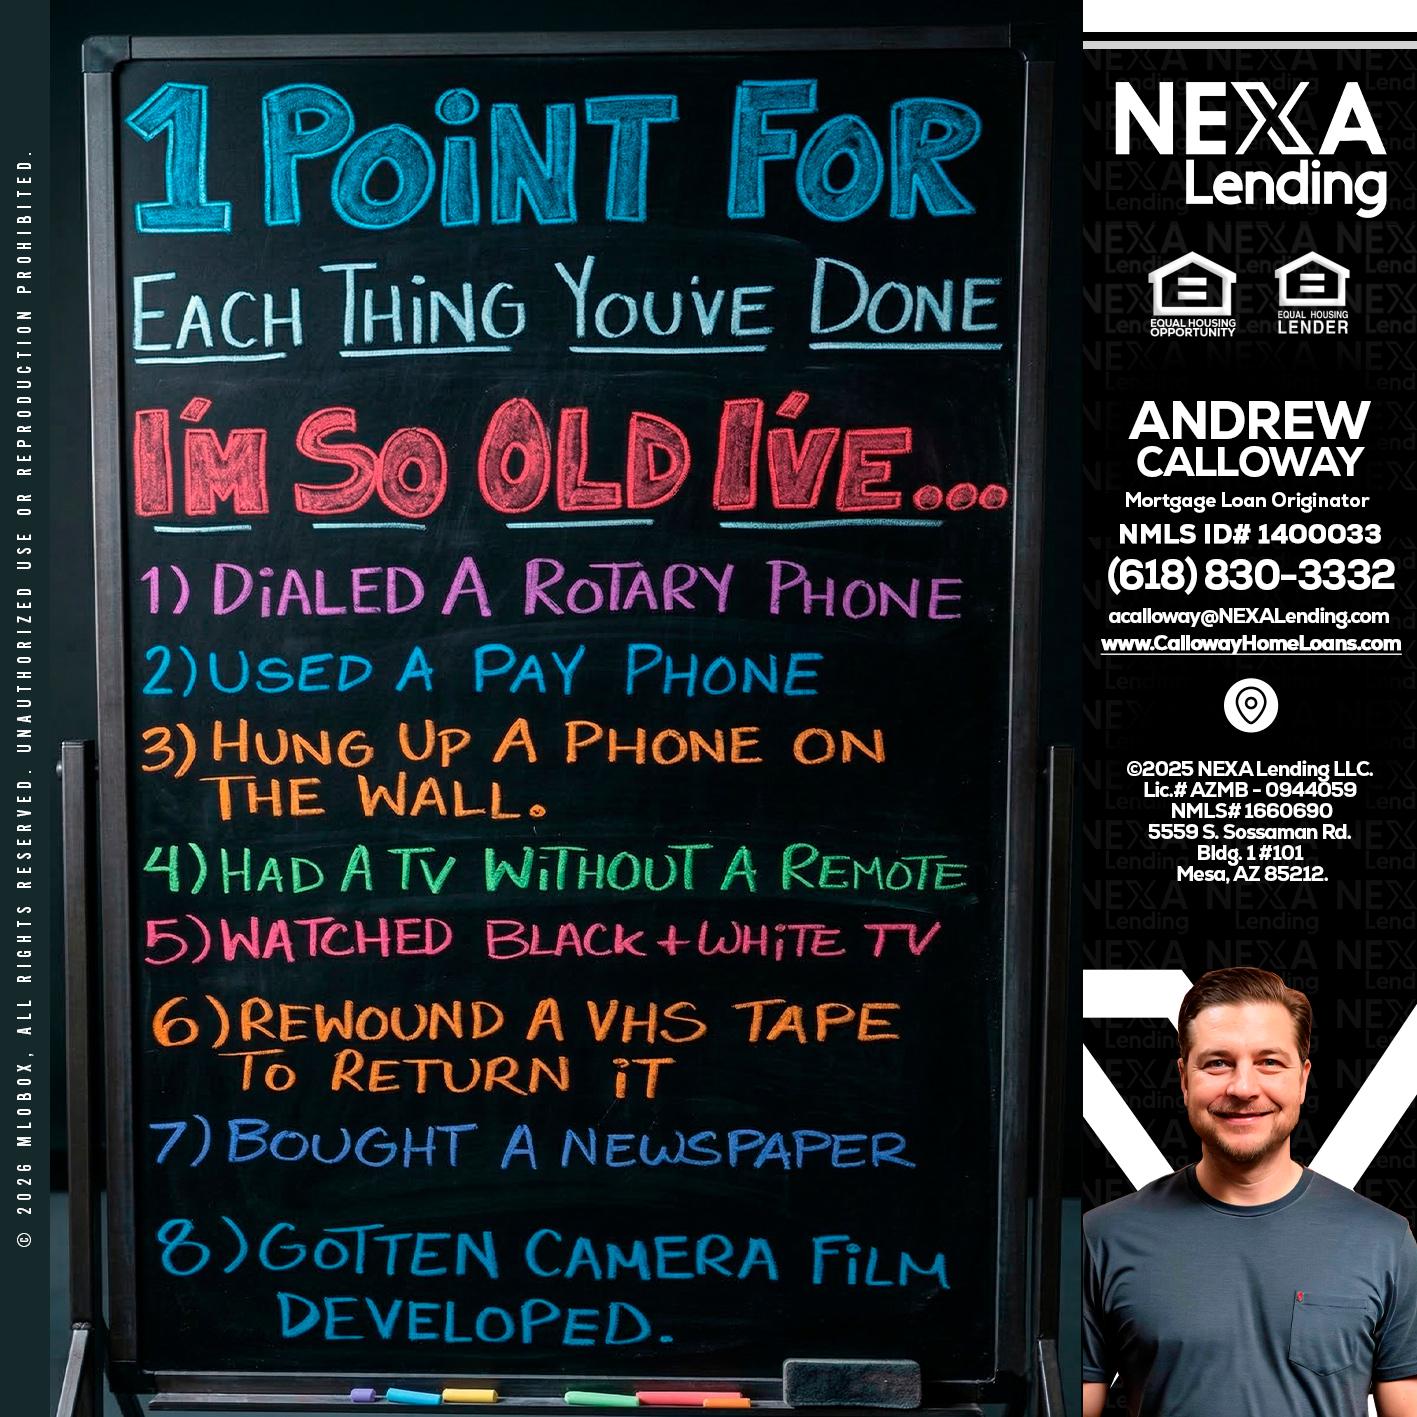 © 2026 MLOBOX, ALL RIGHTS RESERVED. UNAUTHORIZED USE OR REPRODUCTION PROHIBITED.
1 POINT FOR
EACH THING YOU'VE DONE
I'M SO OLD I'VE...
1) DIALED A ROTARY PHONE
2) USED A PAY PHONE
3) HUNG UP A PHONE ON
THE WALL.
4) HAD A TV WITHOUT A REMOTE
5) WATCHED BLACK + WHITE TV
6) REWOUND A VHS TAPE
TO RETURN IT
7) BOUGHT A NEWSPAPER
8) GOTTEN CAMERA FILM
DEVELOPED.
NEXA
Lending
EQUAL HOUSING
OPPORTUNITY
EQUAL HOUSING
LENDER
ANDREW
CALLOWAY
Mortgage Loan Originator
NMLS ID# 1400033
(618) 830-3332
acalloway@NEXALending.com
www.CallowayHomeLoans.com
©2025 NEXA Lending LLC.
Lic.# AZMB - 0944059
NMLS# 1660690
5559 S. Sossaman Rd.
Bldg. 1 #101
Mesa, AZ 85212.